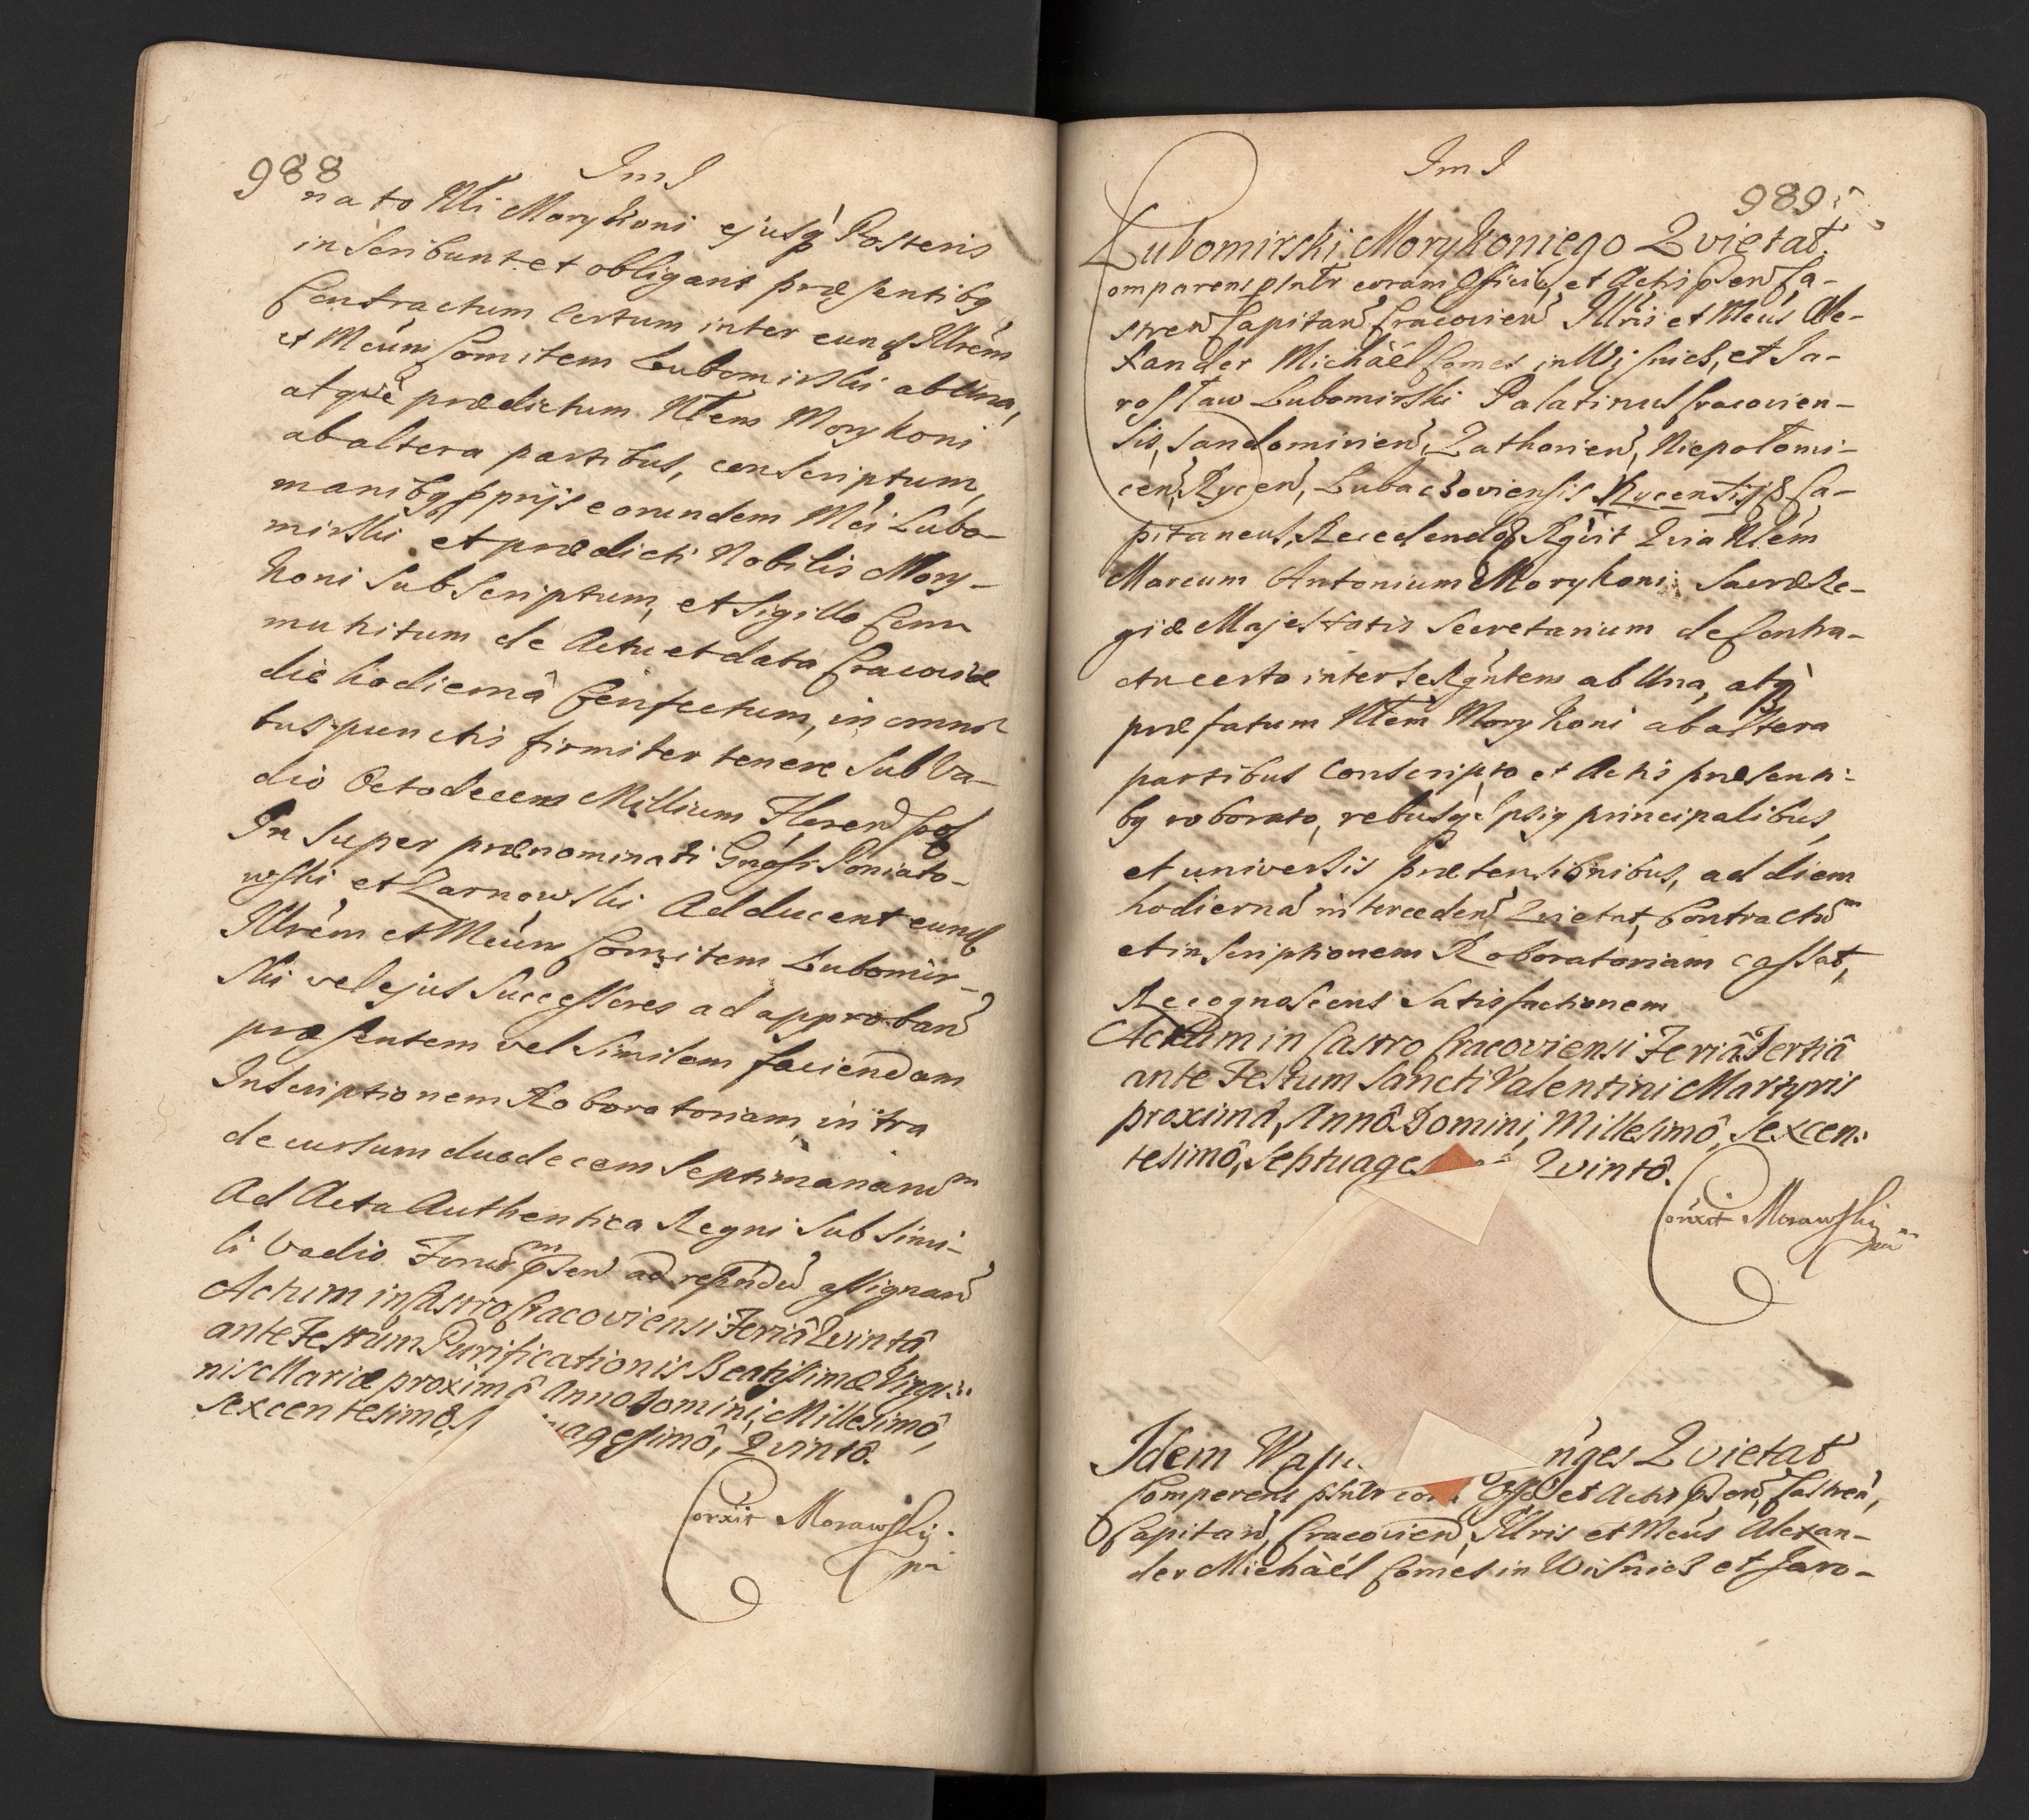 988
Im J
nato Nli Morykoni ejusq Posteris
inscribunt et obligant præsentibq
Contractum certum inter eund Illrem
et Mcum Comitem Lubomirski ab Una,
atque prædictum Nlem Morykoni
ab altera partibus, conscriptum,
manibq pprijs eorundem Mci Lubo-
mirski et prædicti Nobilis Mory-
koni Subscriptum, et Sigillo com
munitum de Actu et data Cracoviæ
die hodiernâ Confectum, in omni
bus punctis firmiter tenere Sub Va-
dio Octodecem Millium Floren
In super prænominati Gnosi Poniato-
wski et Zarnowski Adducent eund
Illrem et Mcum Comitem Lubomir-
ski vel ejus Successores ad approband
præsentem vel Similem faciendam
Inscriptionem Roboratoriam intra
decursum duodecem Septimanarum
Ad Acta Authentica Regni Sub Simi-
li Vadio Forum psen ad respndu assignan
Actum in Castro Cracoviensi Feriâ Quintâ
ante Festum Purificationis Beatissimæ Virgi:
nis Mariæ proximâ Anno Domini, Millesimô,
sexcentesimô, uagesimô, Quintô.
Corrxit Morawski
mp
Im J
989
Lubomirski Morykoniego Quietat
Comparens psnlr coram Officio et Actis psen Ca-
stren Capitan Cracovien Illris et Mcus Ale-
xander Michäel Comes in Wisnicz, et Ja-
rosław Lubomirski Palatinus Cracovien-
sis, Sandomirien, Zathorien, Niepołomi-
cen, Rycen, Lubaczoviensis Rycensisq Ca-
pitaneus, Recedendo Rgvit Quia Nlem
Marcum Antonium Morykoni Sacræ Re-
giæ Majestatis Secretarium de Contra-
ctu certo inter se Rgntem ab Una, atq
præfatum Nlem Morykoni ab altera
partibus Conscripto et Actis præsenti-
bq roborato, rebusq Ipsiq principalibus,
et universis prætensionibus, ad diem
hodiernam interceden Quietat, Contractum
et inscriptionem Roboratoriam cassat,
Recognoscens Satisfactionem
Actum in Castro Cracoviensi Feriâ Tertiâ
ante Festum Sancti Valentini Martyris
proximâ, Annô Domini, Millesimô, Sexcen:
tesimô, Septuages Quintô.
Corrxit Morawski
mp
Idem nges Quietat
Comparens psnlr cor Offo et Actis psen, Castren,
Capitan, Cracovien, Illris et Mcus Alexan-
der Michäel Comes in Wisnicz et Jaro-